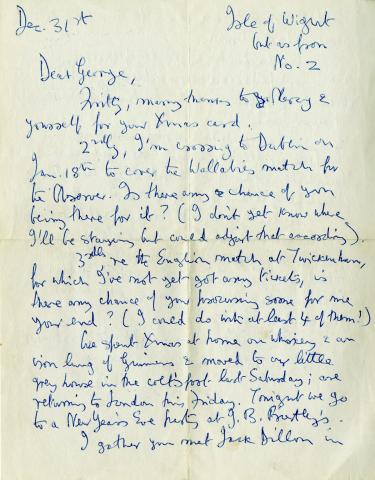 Dec. 31st
Isle of Wight
but as from
No. 2
Dear George,
Firstly, many thanks to &
yourself for your Xmas card.
2ndly, I'm crossing to Dublin on
Jan. 18th to cover the Wallabies match for
the Observer. Is there any chance of your
being there for it? (I don't yet know where
I'll be staying but could adjust that according).
3rdly re the English match at Twickenham,
for which I've not yet got any tickets, is
there any chance of your procuring some for me
your end? (I could do with at least 4 of them!)
We spent Xmas at home on whiskey & an
iron lung of Guinness & moved to our little
grey house in the last Saturday; are
returning to London this Friday. Tonight we go
to a New Year's Eve party at J. B.
I gather you met Jack Dillon in